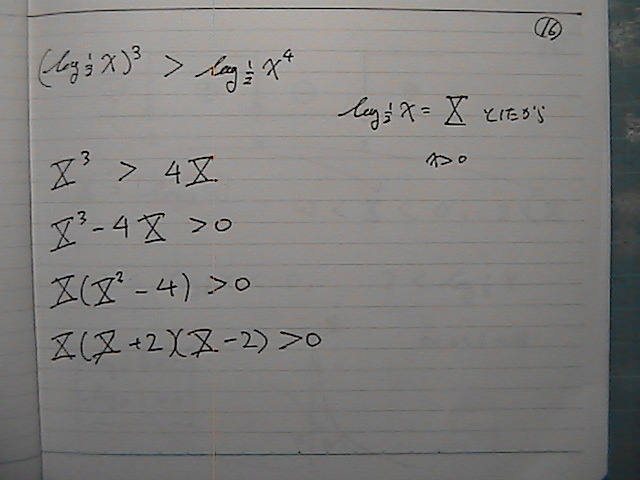 ⑯
(log½ x)³ > log½ x⁴
log½ x = X としたら
x > 0
X³ > 4X
X³ - 4X > 0
X(X² - 4) > 0
X(X + 2)(X - 2) > 0